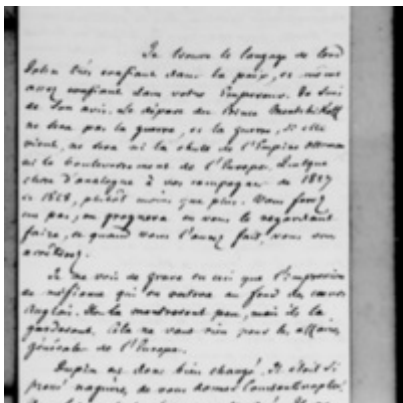 Je trouve le langage de Lord
très confiant dans la paix, et même
assez confiant dans votre Empereur. Je suis
de son avis. Le départ du Prince Mentchikoff
ne sera pas la guerre, et la guerre, si elle
vient, ne sera ni la chute de l'Empire Ottoman
ni le bouleversement de l'Europe. Quelque
chose d'analogue à vos campagnes de 1827
et 1828, plutôt moins que plus. Vous ferez
un pas, on grognera en vous le regardant
faire, et quand vous l'aurez fait, vous vous
arrêterez.
Je ne vois de grave en ceci que l'impression
de méfiance qui en restera au fond des cœurs
Anglais. Ils la montreront peu, mais ils la
garderont. Cela ne vaut rien pour les affaires
générales de l'Europe.
Dupin est donc bien changé. Il était si
pressé naguères de vous donner Constantinople.